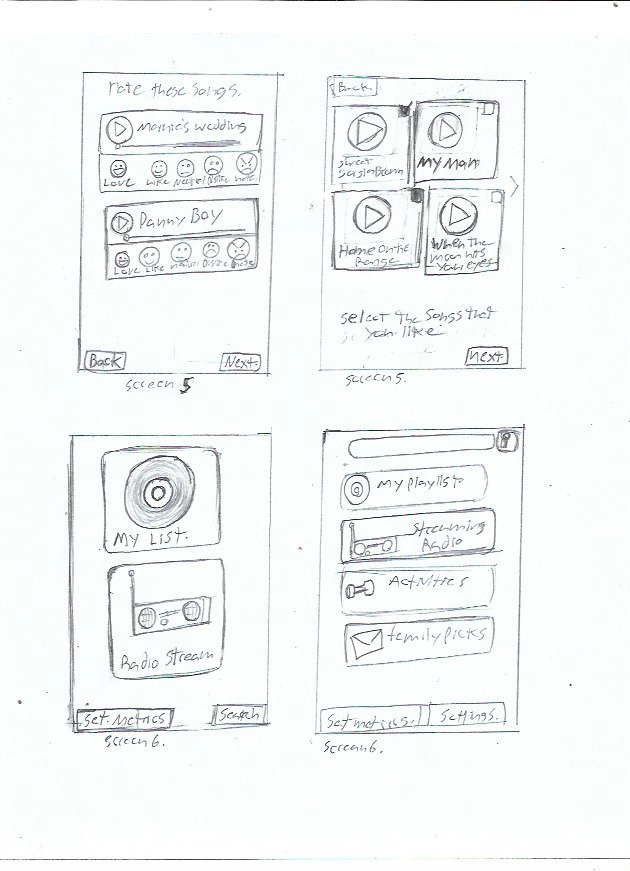 rate these songs.
Marnie's wedding
Love Like Neutral Dislike hate
Danny Boy
Love Like neutral Dislike hate
Back Next.
screen 5
Back.
My Man
Home On the
Range
When The
moon hits
your eyes
select the songs that
you like
next.
screen 5.
My List.
Radio Stream
Set. Metrics Search
screen 6.
My playlist
Streaming
Radio
Activities
family picks
Set metrics. Settings.
screen 6.